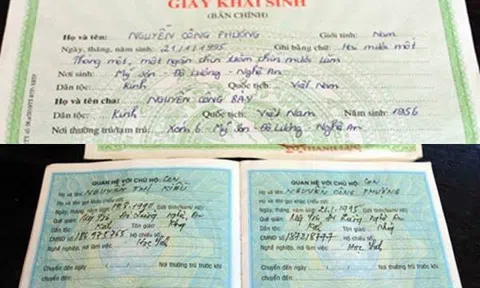 GIẤY KHAI SINH
(BẢN CHÍNH)
Họ và tên: NGUYỄN CÔNG PHƯỢNG Giới tính: Nam
Ngày, tháng, năm sinh: 21.01.1995 Ghi bằng chữ: Hai mươi mốt
Tháng một, một ngàn chín trăm chín mươi lăm
Nơi sinh: Mỹ Sơn - Đô Lương - Nghệ An
Dân tộc: Kinh Quốc tịch: Việt Nam
Họ và tên cha: NGUYỄN CÔNG BẢY
Dân tộc: Kinh Quốc tịch: Việt Nam Năm sinh: 1956
Nơi thường trú/tạm trú: Xóm 6 - Mỹ Sơn - Đô Lương - Nghệ An
QUAN HỆ VỚI CHỦ HỘ: CON
Họ và tên: NGUYỄN THỊ
Họ và tên gọi khác (nếu có):
Ngày, tháng, năm sinh: 1990 Giới tính:
Quê quán: Đô Lương Nghệ An
Dân tộc: Kinh Tôn giáo: Không
CMND số: 186975765 Hộ chiếu số:
Nghề nghiệp, nơi làm việc: Học sinh
Chuyển đến ngày
Nơi thường trú trước khi
chuyển đến:
QUAN HỆ VỚI CHỦ HỘ: CON
Họ và tên: NGUYỄN CÔNG PHƯỢNG
Họ và tên gọi khác (nếu có):
Ngày, tháng, năm sinh: 21.1.1995 Giới tính: Nam
Quê quán: Đô Lương Nghệ An
Dân tộc: Kinh Tôn giáo: Không
CMND số: Hộ chiếu số:
Nghề nghiệp, nơi làm việc: Học sinh
Chuyển đến ngày
Nơi thường trú trước khi
chuyển đến: